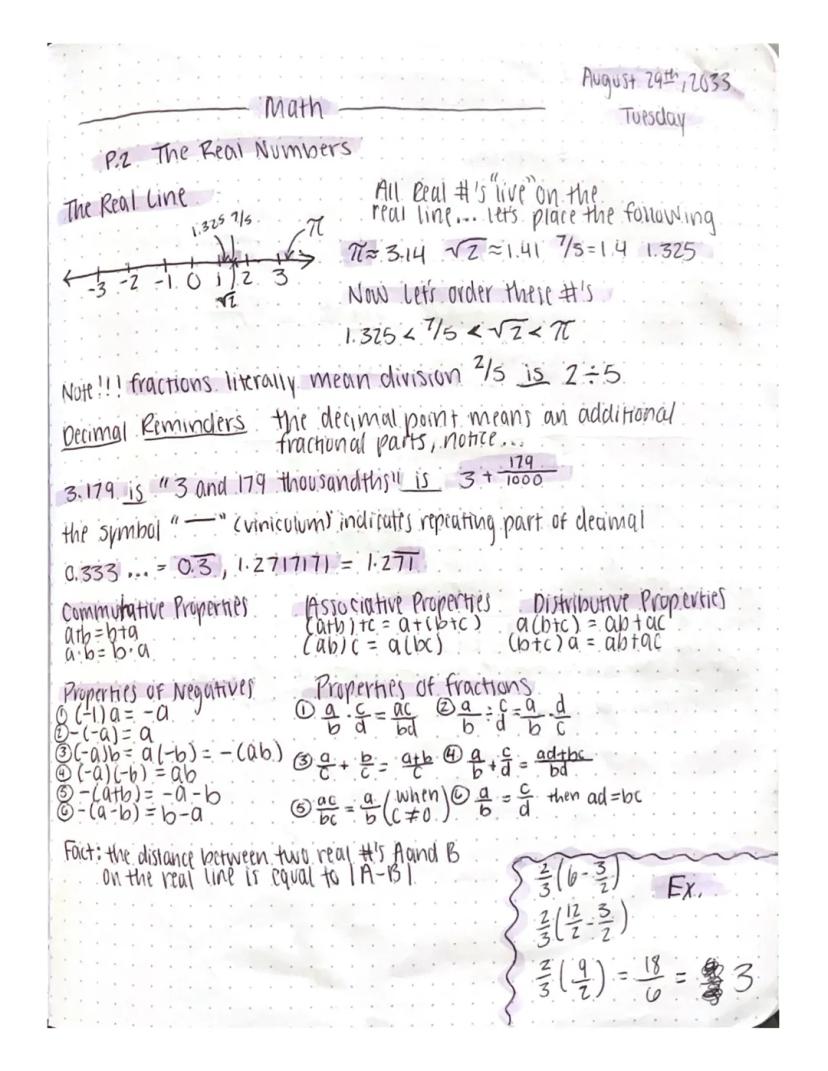 August 29th, 2033
Tuesday
Math
P.2 The Real Numbers
The Real Line
1.325 7/5 π
-3 -2 -1 0 1 2 3
√2
All Real #'s "live" on the
real line... let's place the following
π≈ 3.14 √2 ≈1.41 7/5=1.4 1.325
Now Let's order these #'s
1.325 < 7/5 < √2 < π
Note!!! fractions literally mean division 2/5 is 2÷5
Decimal Reminders the decimal point means an additional
fractional parts, notice...
3.179 is "3 and 179 thousandths" is 3 + 179/1000
the symbol "—" (viniculum) indicates repeating part of decimal
0.333 ... = 0.3̅, 1.2717171 = 1.27̅1̅
Commutative Properties
a+b=b+a
a·b=b·a
Associative Properties
(a+b)+c = a+(b+c)
(ab)c = a(bc)
Distributive Properties
a(b+c) = ab+ac
(b+c)a = ab+ac
Properties of Negatives
① (-1)a = -a
② -(-a) = a
③ (-a)b = a(-b) = -(ab)
④ (-a)(-b) = ab
⑤ -(a+b) = -a-b
⑥ -(a-b) = b-a
Properties of fractions
① a/b · c/d = ac/bd ② a/b ÷ c/d = a/b · d/c
③ a/c + b/c = a+b/c ④ a/b + c/d = ad+bc/bd
⑤ ac/bc = a/b (when c≠0) ⑥ a/b = c/d then ad=bc
Fact: the distance between two real #'s A and B
on the real line is equal to |A-B|
Ex.
2/3(6 - 3/2)
2/3(12/2 - 3/2)
2/3(9/2) = 18/6 = 3